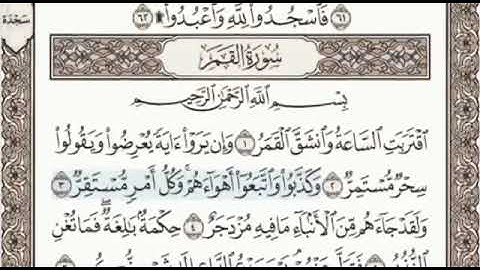 ٦١ فَٱسْجُدُوا۟ لِلَّهِ وَٱعْبُدُوا۟ ۩ ٦٢
سجدة
سُورَةُ القَمَرِ
بِسْمِ اللَّهِ الرَّحْمَٰنِ الرَّحِيمِ
ٱقْتَرَبَتِ ٱلسَّاعَةُ وَٱنشَقَّ ٱلْقَمَرُ ١ وَإِن يَرَوْا۟ ءَايَةً يُعْرِضُوا۟ وَيَقُولُوا۟
سِحْرٌ مُّسْتَمِرٌّ ٢ وَكَذَّبُوا۟ وَٱتَّبَعُوٓا۟ أَهْوَآءَهُمْ ۚ وَكُلُّ أَمْرٍ مُّسْتَقِرٌّ ٣
وَلَقَدْ جَآءَهُم مِّنَ ٱلْأَنۢبَآءِ مَا فِيهِ مُزْدَجَرٌ ٤ حِكْمَةٌۢ بَٰلِغَةٌ ۖ فَمَا تُغْنِ